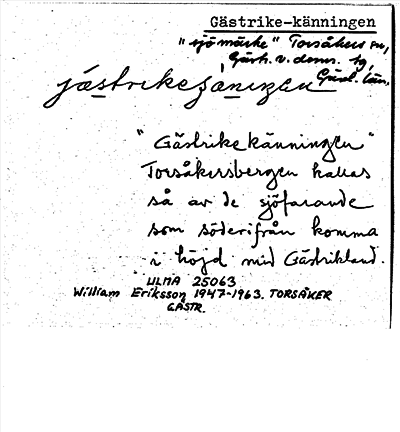 Gästrike-känningen
"sjömärke" Torsåkers sn,
Gästr. v. doms. tg,
Gävl. län.
jästrikeçäninzen
"Gästrikekänningen"
Torsåkersbergen kallas
så av de sjöfarande
som söderifrån komma
i höjd med Gästrikland.
ULMA 25063
William Eriksson 1947-1963. TORSÅKER
GÄSTR.